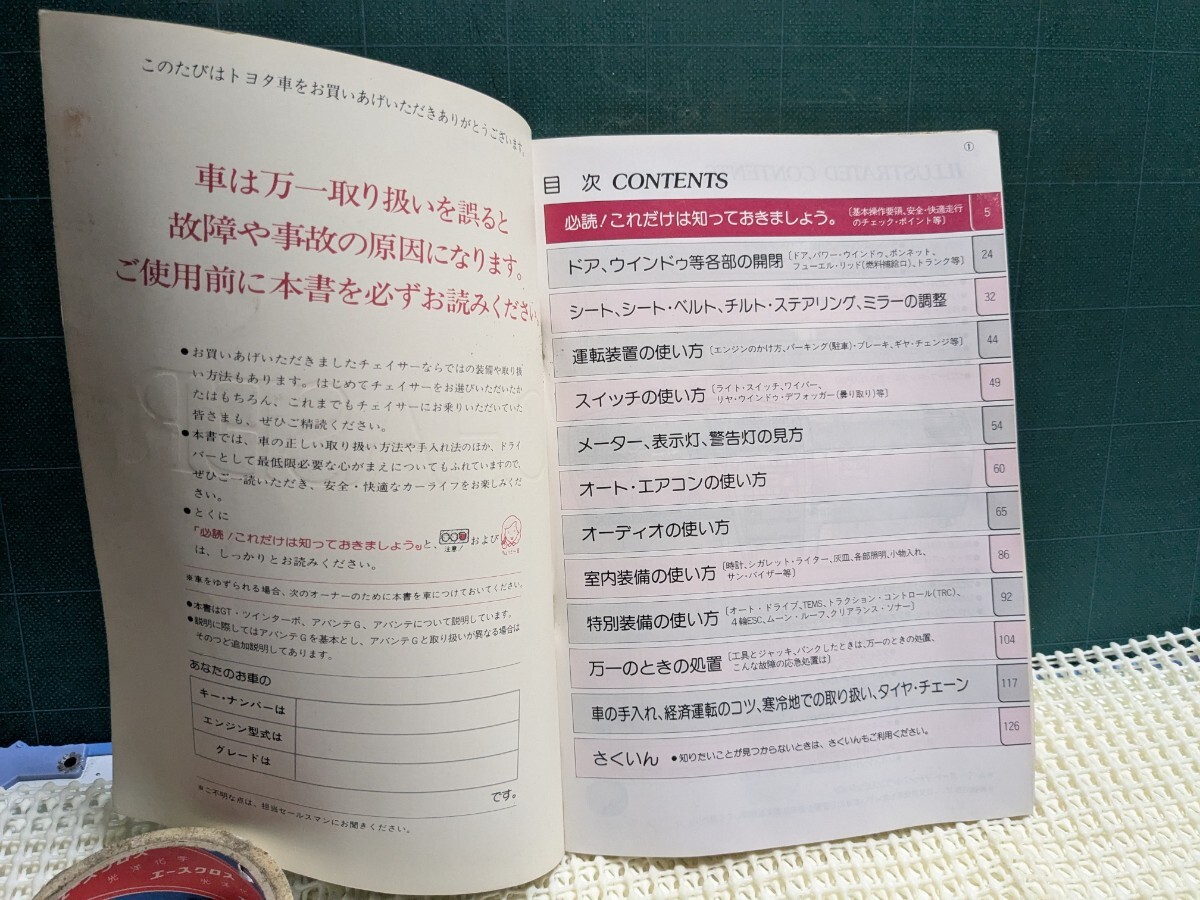 このたびはトヨタ車をお買いあげいただきありがとうございます。
車は万一取り扱いを誤ると
故障や事故の原因になります。
ご使用前に本書を必ずお読みください。
●お買いあげいただきましたチェイサーならではの装備や取り扱
い方法もあります。はじめてチェイサーをお選びいただいたか
たはもちろん、これまでもチェイサーにお乗りいただいていた
皆さまも、ぜひご精読ください。
●本書では、車の正しい取り扱い方法や手入れ法のほか、ドライ
バーとして最低限必要な心がまえについてもふれていますので、
ぜひご一読いただき、安全・快適なカーライフをお楽しみくだ
さい。
●とくに
「必読!これだけは知っておきましょう。」と、注意!および
は、しっかりとお読みください。
※車をゆずられる場合、次のオーナーのために本書を車につけておいてください。
●本書はGT・ツインターボ、アバンテG、アバンテについて説明しています。
●説明に際してはアバンテGを基本とし、アバンテGと取り扱いが異なる場合は
そのつど追加説明してあります。
あなたのお車の
キー・ナンバーは
エンジン型式は
グレードは
です。
※ご不明な点は、担当セールスマンにお聞きください。
①
目 次 CONTENTS
必読!これだけは知っておきましょう。〔基本操作要領、安全・快適走行のチェック・ポイント等〕 5
ドア、ウインドゥ等各部の開閉〔ドア、パワー・ウインドゥ、ボンネット、フューエル・リッド(燃料補給口)、トランク等〕 24
シート、シート・ベルト、チルト・ステアリング、ミラーの調整 32
運転装置の使い方〔エンジンのかけ方、パーキング(駐車)・ブレーキ、ギヤ・チェンジ等〕 44
スイッチの使い方〔ライト・スイッチ、ワイパー、リヤ・ウインドゥ・デフォッガー(曇り取り)等〕 49
メーター、表示灯、警告灯の見方 54
オート・エアコンの使い方 60
オーディオの使い方 65
室内装備の使い方〔時計、シガレット・ライター、灰皿、各部照明、小物入れ、サン・バイザー等〕 86
特別装備の使い方〔オート・ドライブ、TEMS、トラクション・コントロール(TRC)、4輪ESC、ムーン・ルーフ、クリアランス・ソナー〕 92
万一のときの処置〔工具とジャッキ、パンクしたときは、万一のときの処置、こんな故障の応急処置は〕 104
車の手入れ、経済運転のコツ、寒冷地での取り扱い、タイヤ・チェーン 117
さくいん ●知りたいことが見つからないときは、さくいんもご利用ください。 126
エースクロス